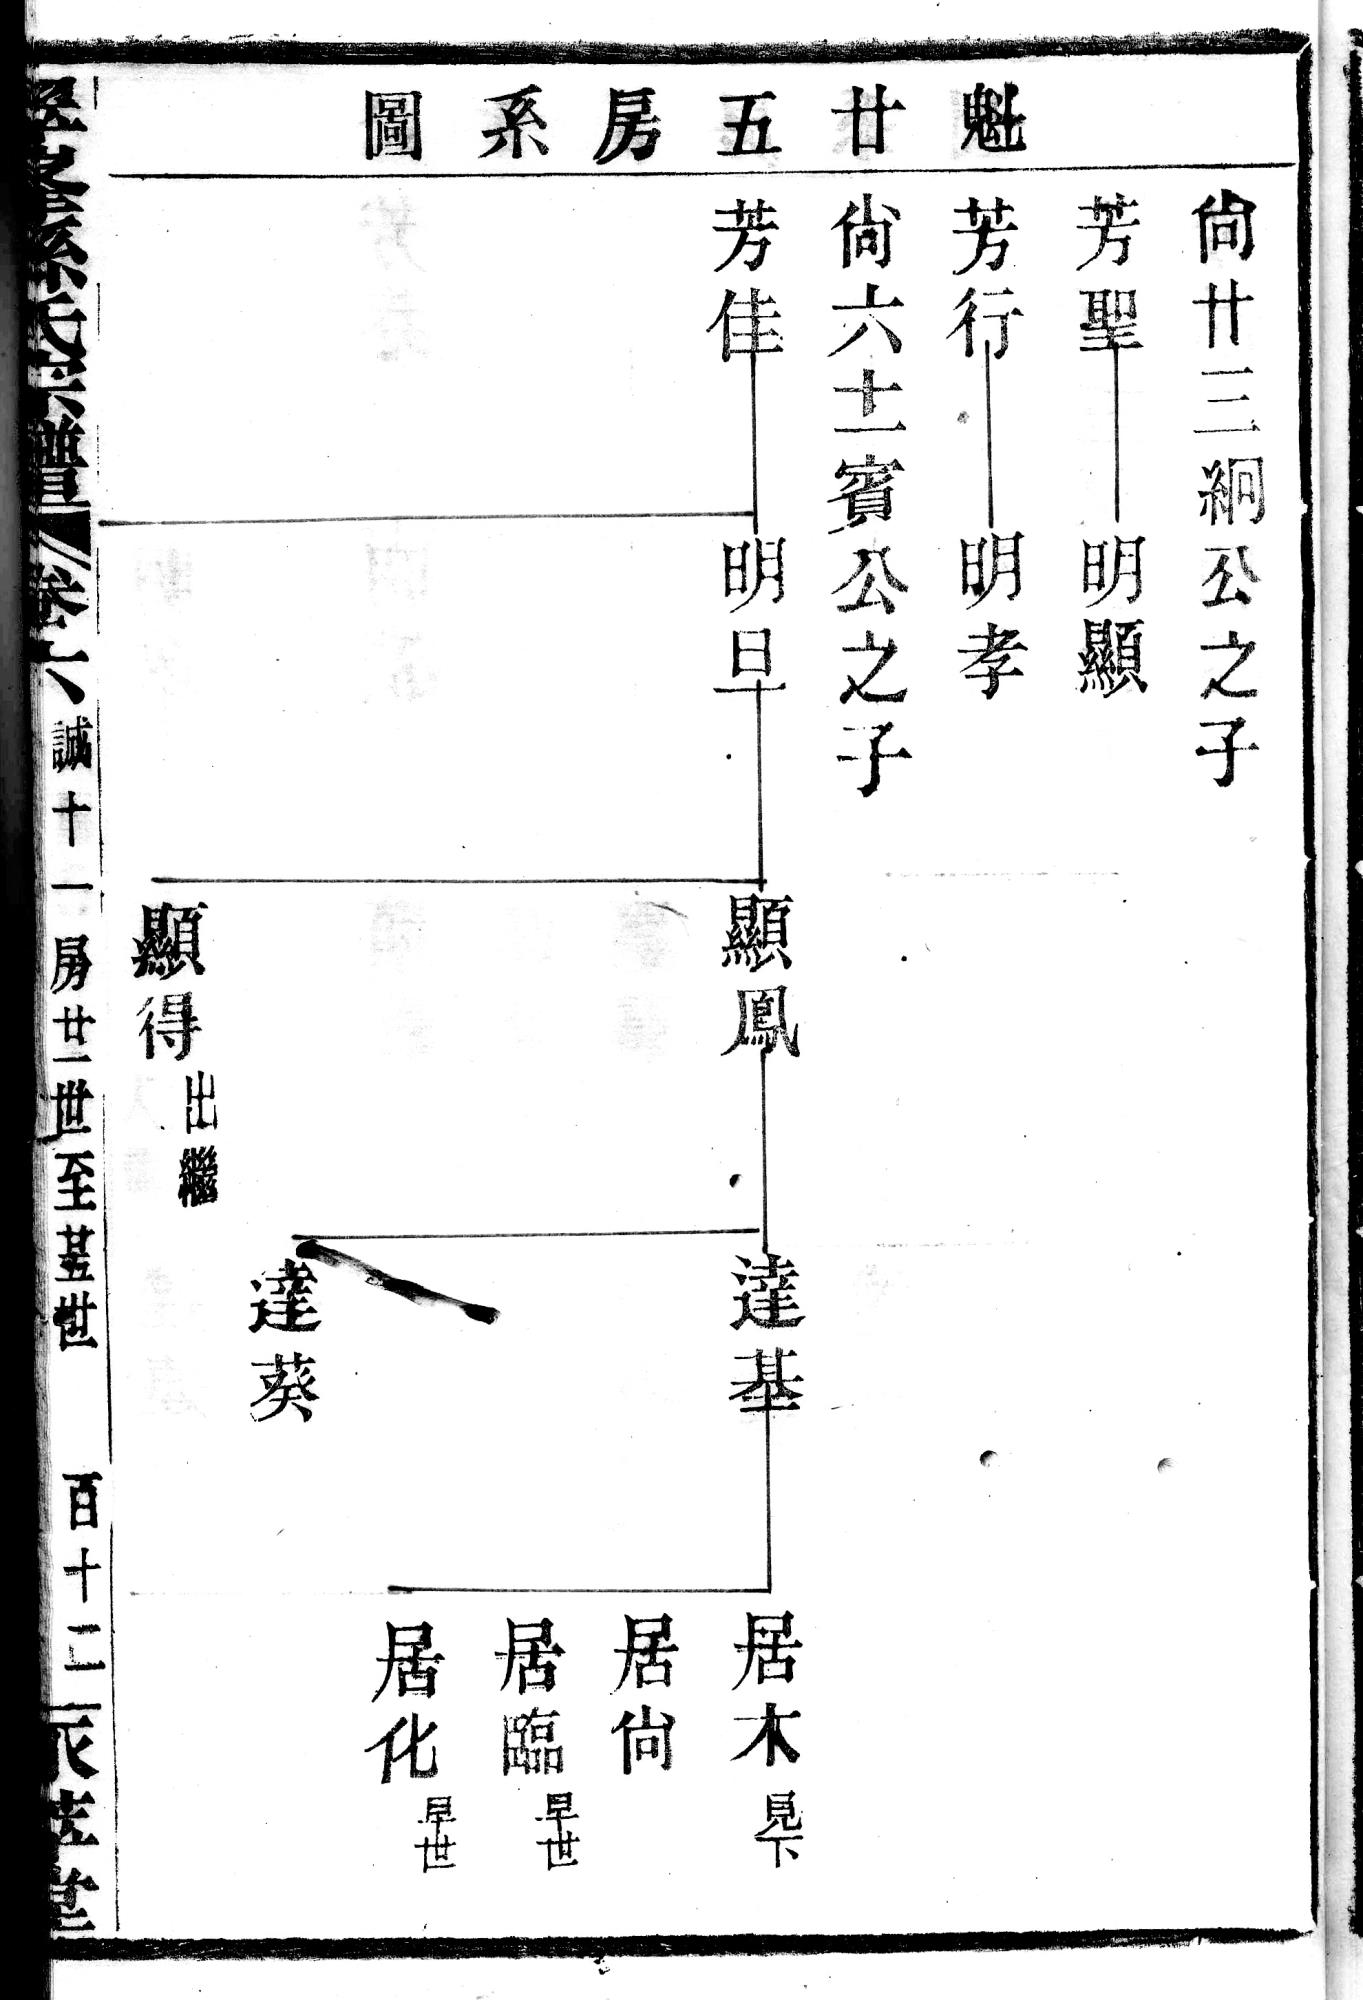 魁廿五房系圖
尙廿三絅公之子
芳聖 明顯
芳行 明孝
尙六十一賓公之子
芳佳 明旦 顯鳳 達基 居木 見下
居尙
居臨 早世
居化 早世
達葵
顯得 出繼
孫氏宗譜 卷六 誠十一房廿一世至廿五世 百十二 堂